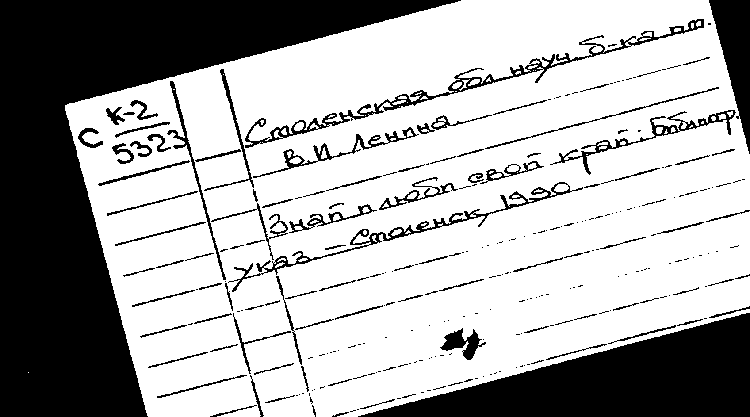 С К-2
5323
Смоленская обл. науч. б-ка им.
В.И. Ленина.
Знай и люби свой край: Библиогр.
указ. - Смоленск, 1990